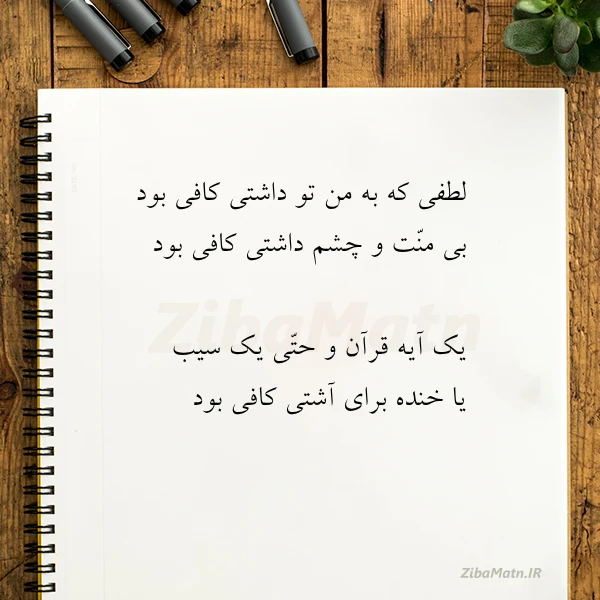 لطفی که به من تو داشتی کافی بود
بی منّت و چشم داشتی کافی بود
یک آیه قرآن و حتّی یک سیب
یا خنده برای آشتی کافی بود
ZibaMatn
ZibaMatn.IR